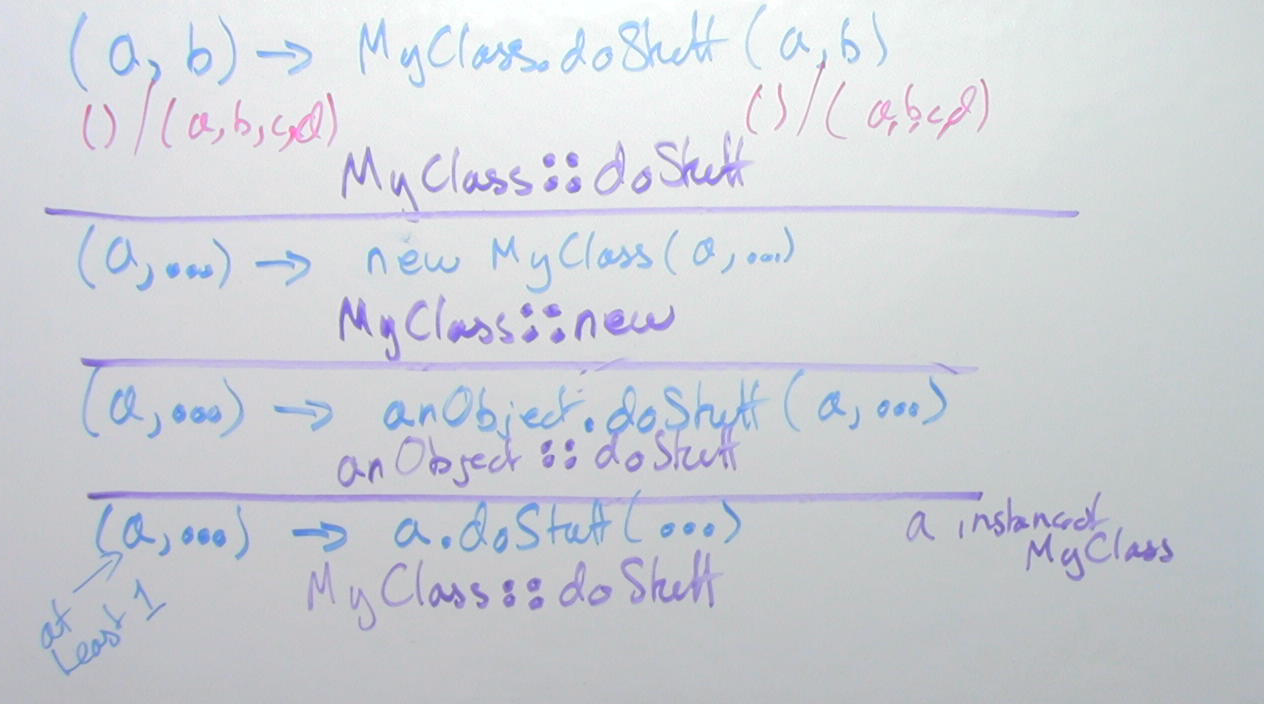 (a, b) → MyClass.doStuff(a,b)
()/(a,b,c,d) ()/(a,b,c,d)
MyClass::doStuff
(a,...) → new MyClass(a,...)
MyClass::new
(a,...) → anObject.doStuff(a,...)
anObject::doStuff
(a,...) → a.doStuff(...)
a instanceof
MyClass
MyClass::doStuff
at
Least 1